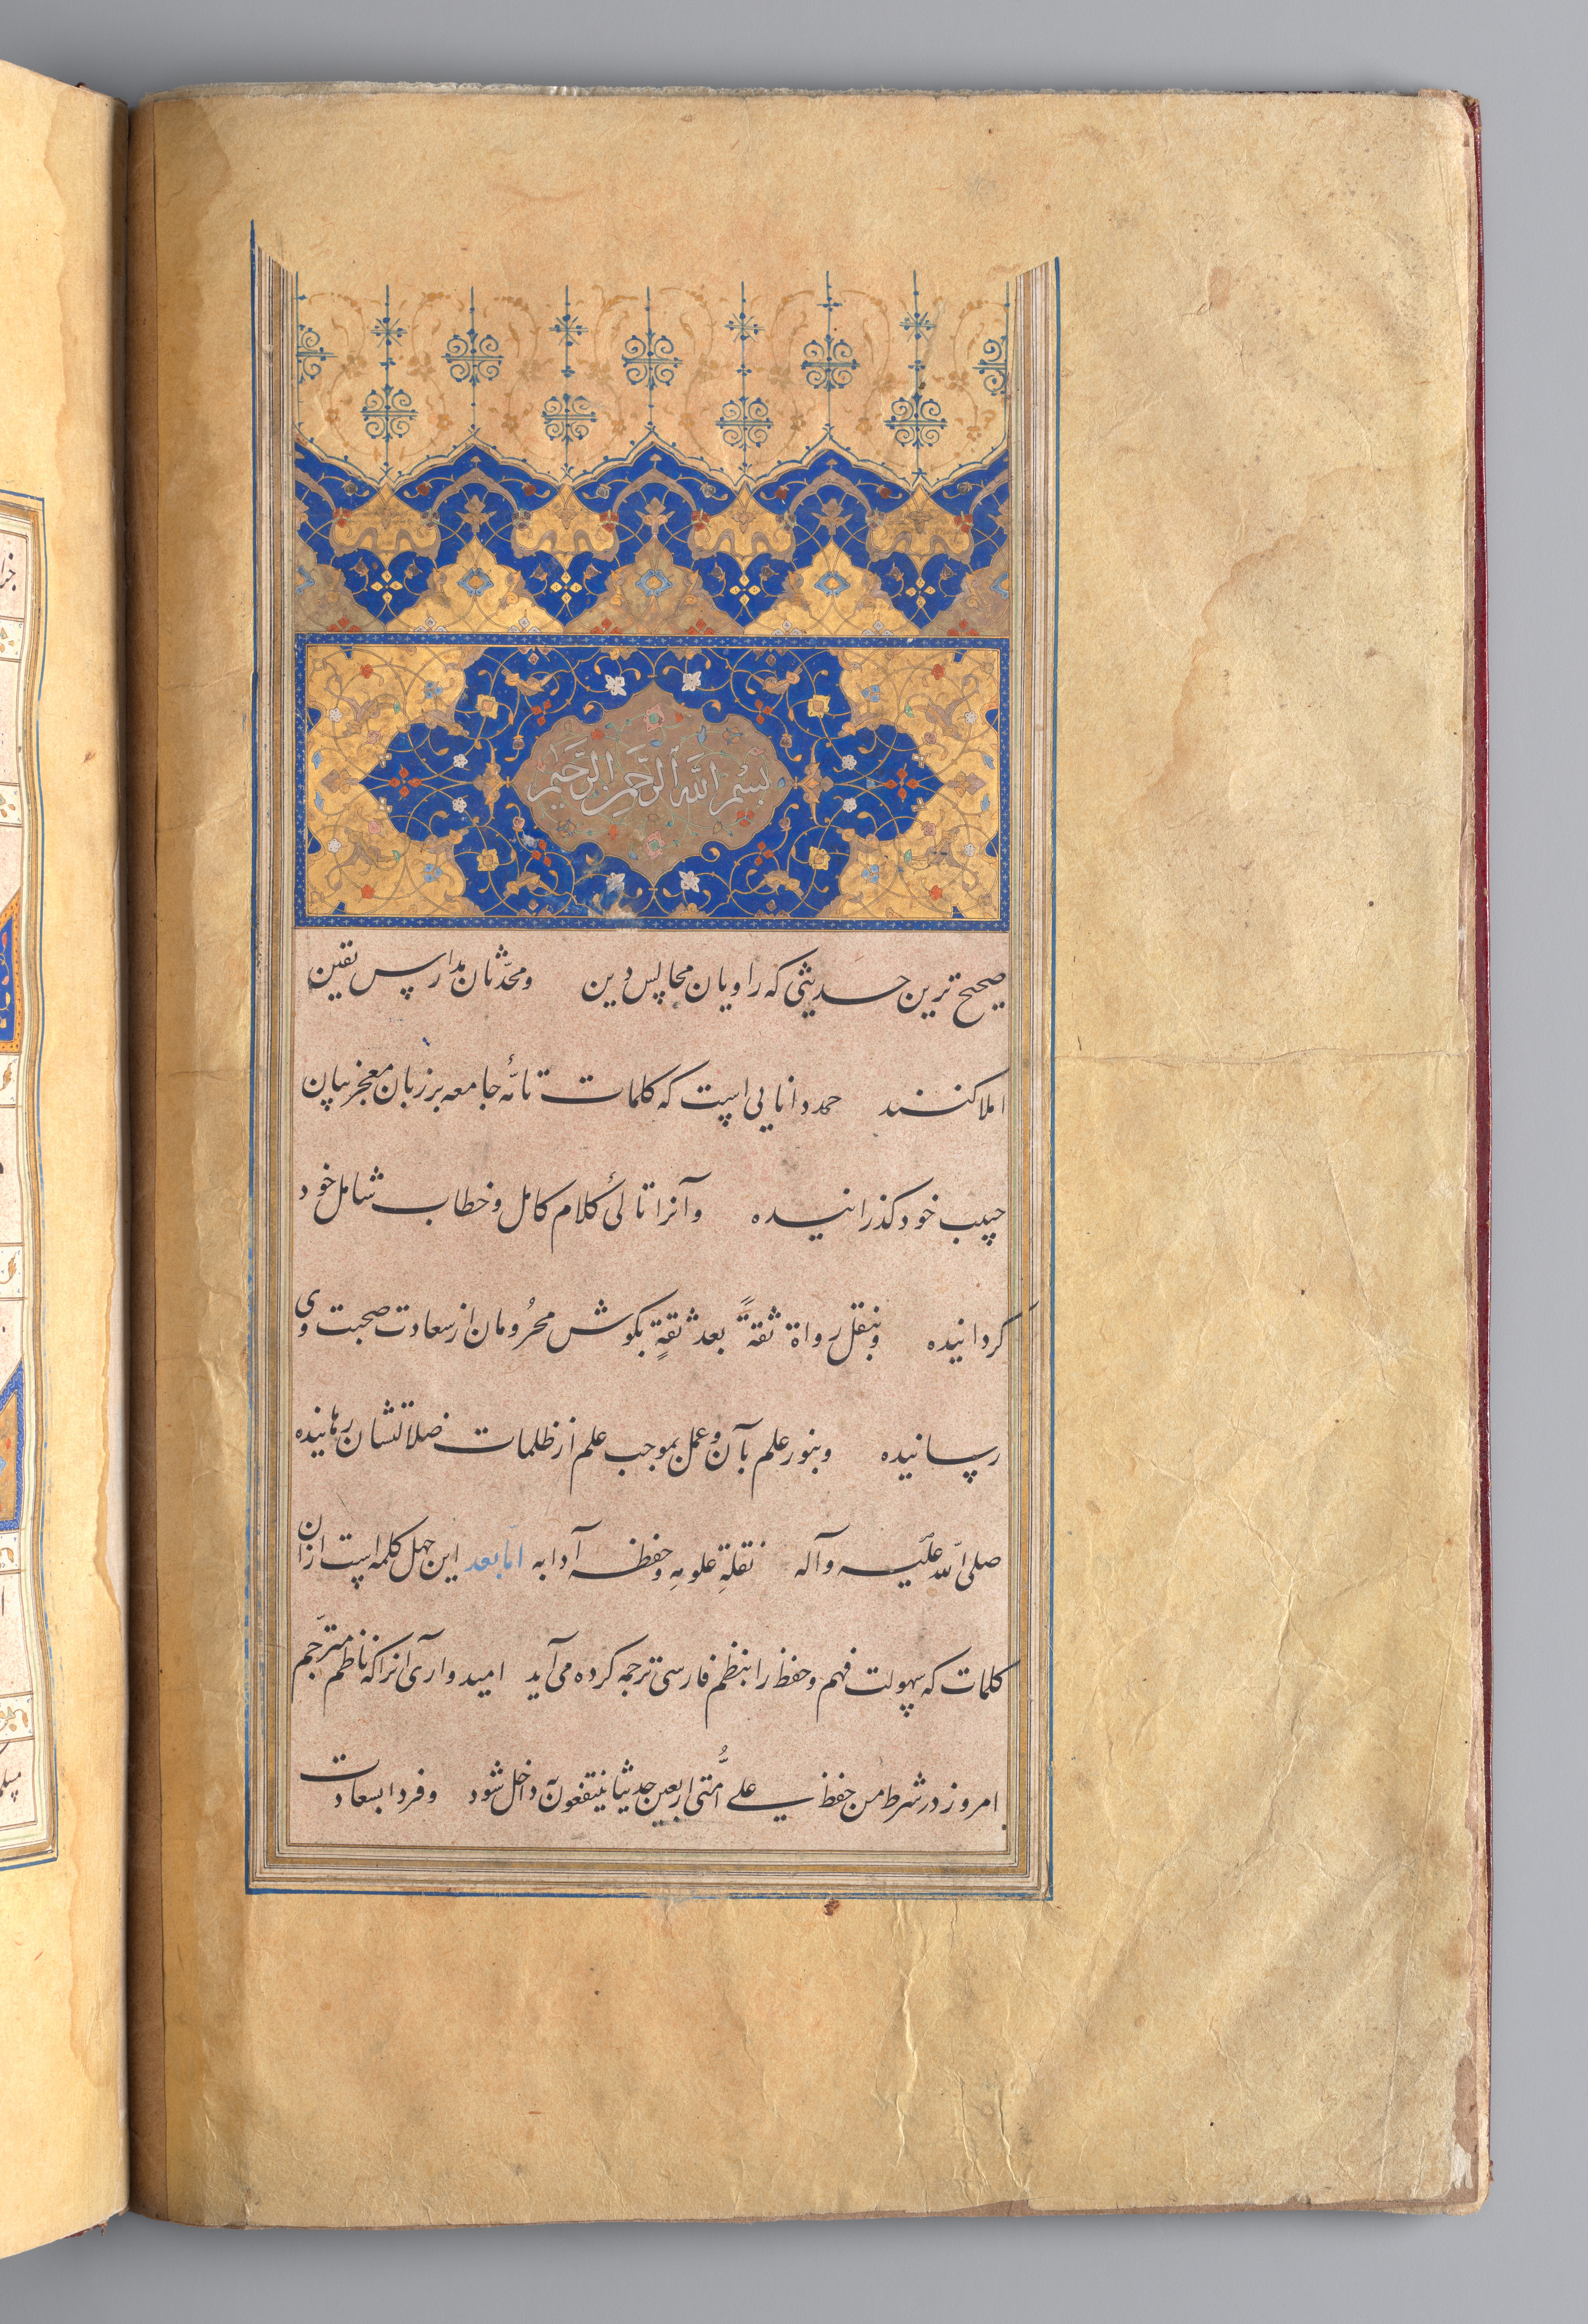 بسم الله الرحمن الرحیم
صحیح ترین حدیثی که راویان مجالس دین ومحدّثان مدارس یقین
املا کنند حمد دانایی است که کلمات تامّهٔ جامعه بر زبان معجز بیان
حبیب خود کذرانیده وآنرا تالیٔ کلام کامل و خطاب شامل خود
کردانیده وبنقل رواة ثقةً بعد ثقةٍ بکوش محرُومان از سعادت صحبت وی
رسانیده وبنور علم بآن و عمل بموجب علم از ظلمات ضلالتشان رهانیده
صلی الله علیه وآله نقلةِ علومهِ وحفظه آدابه امّا بعد این چهل کلمه است ازان
کلمات که سهولت فهم و حفظ را بنظم فارسی ترجمه کرده می آید امیدواری آنرا که ناظم مترجم
امروز در شرط من حفظ علے اُمّتی اربعین حدیثا ینتفعون به داخل شود وفردا بسعادت